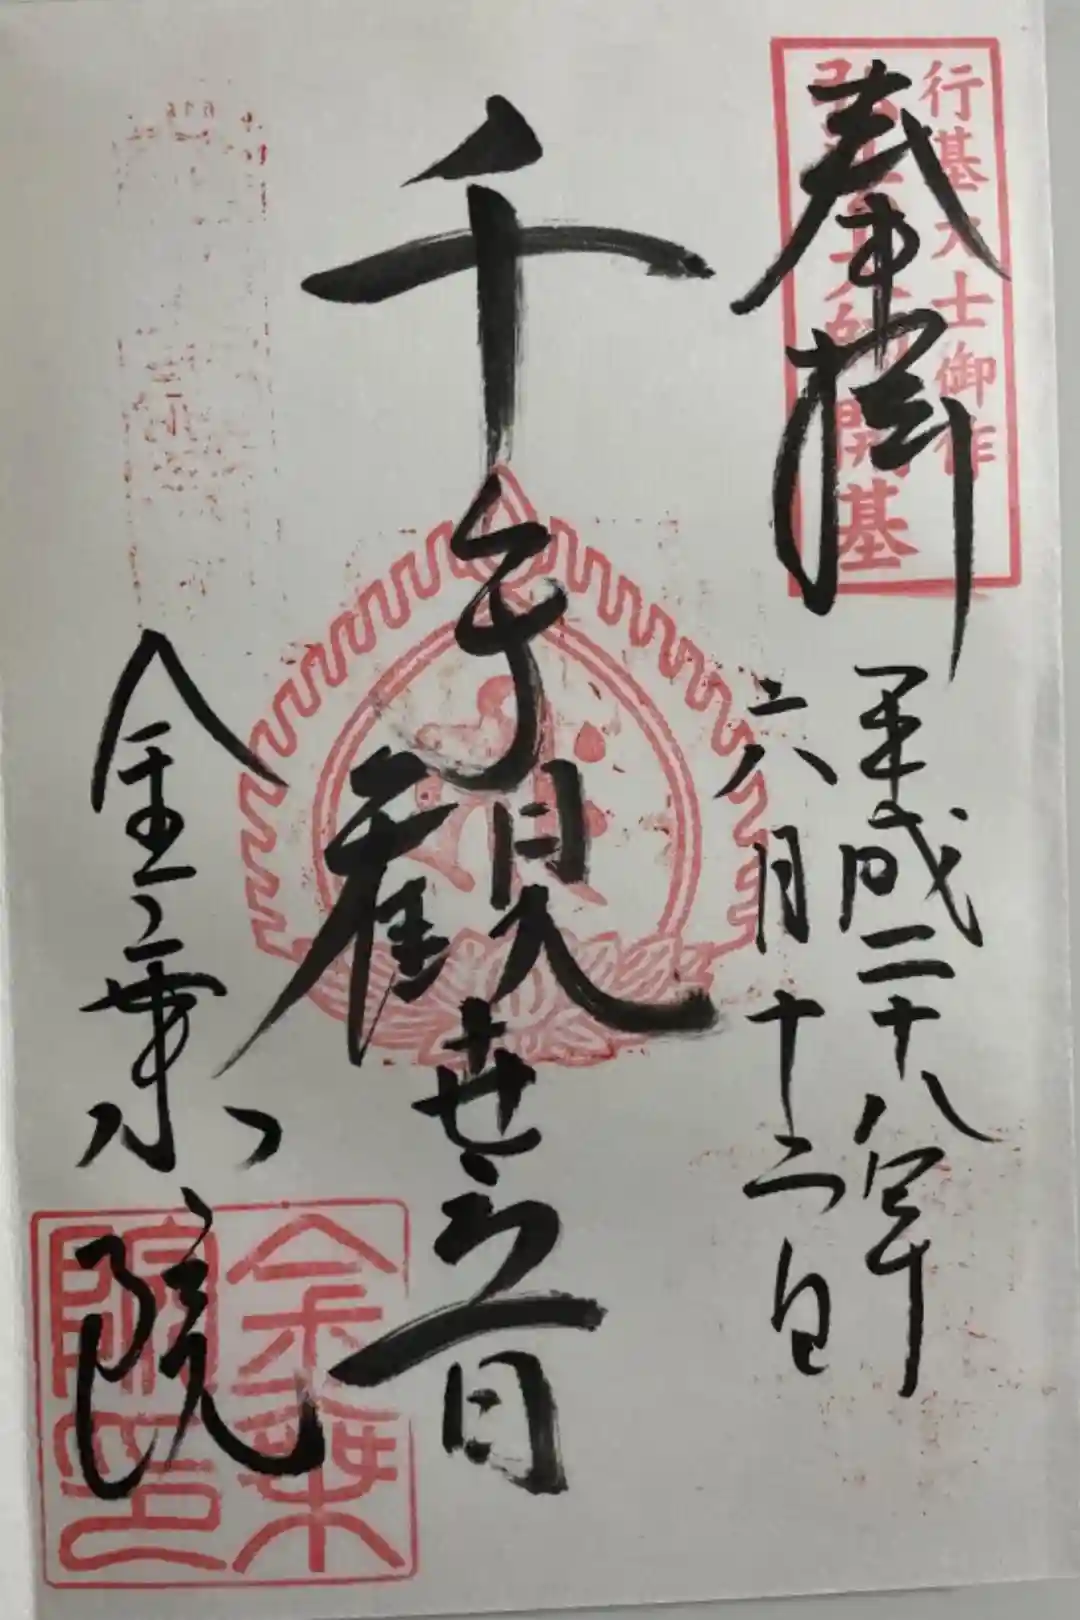 行基大士御作
弘法大師開基
奉拝
平成二十八年
六月十二日
千手観世音
金乗院
金乗
院印